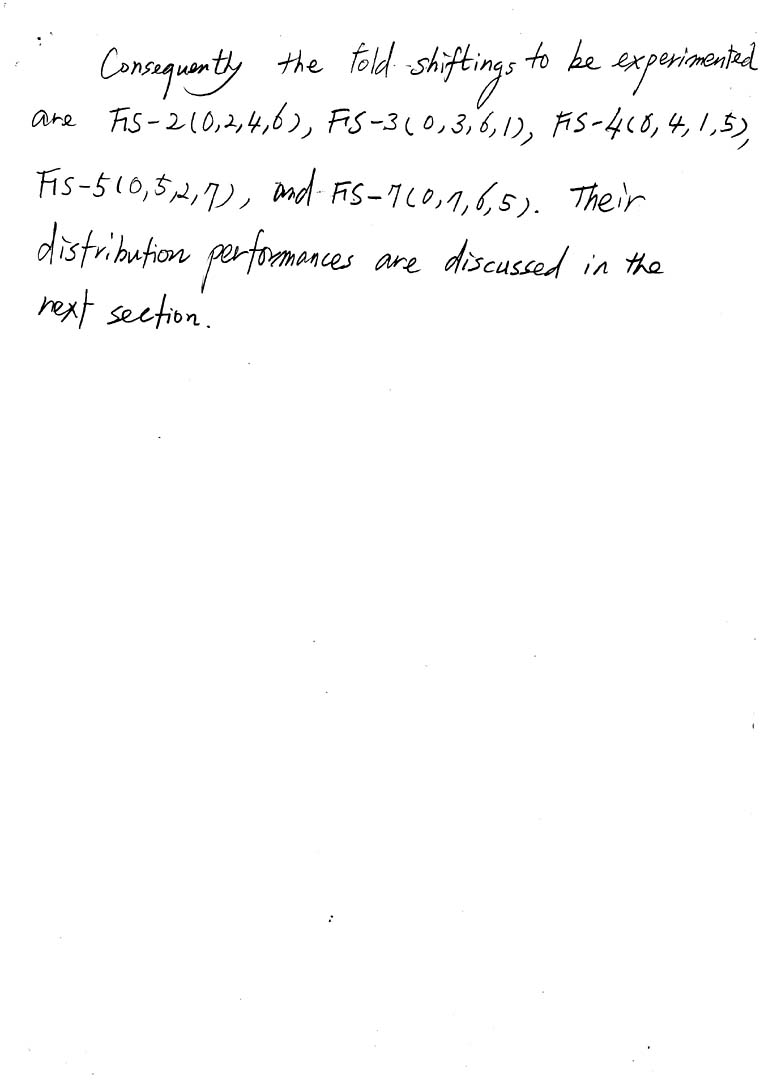 Consequently the fold-shiftings to be experimented
are FS-2(0,2,4,6), FS-3(0,3,6,1), FS-4(0,4,1,5),
FS-5(0,5,2,7), and FS-7(0,7,6,5). Their
distribution performances are discussed in the
next section.